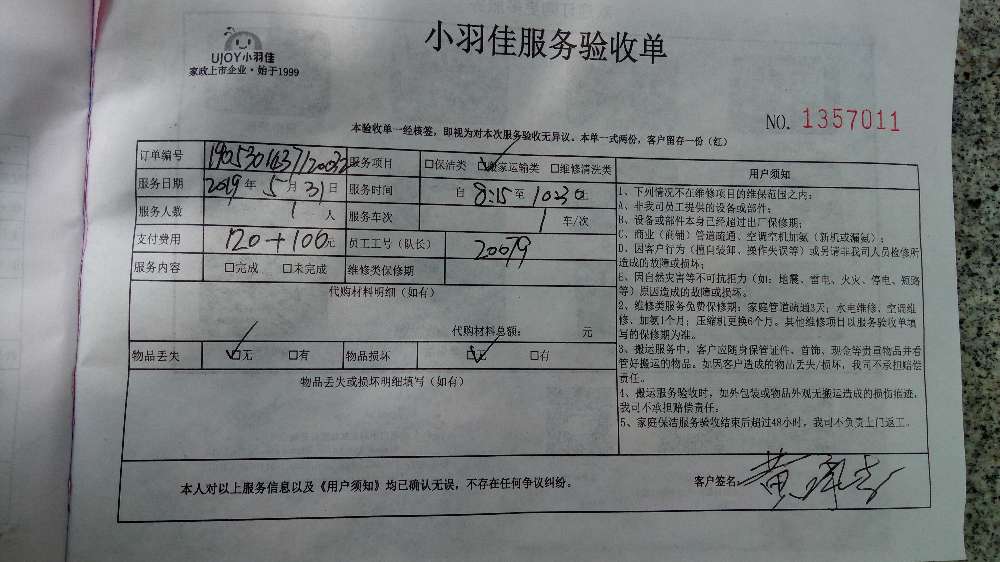 UJOY小羽佳
家政上市企业·始于1999
小羽佳服务验收单
NO. 1357011
本验收单一经核签，即视为对本次服务验收无异议。本单一式两份，客户留存一份（红）
订单编号 服务项目 □保洁类 □搬家运输类 □维修清洗类
服务日期 2019年5月31日 服务时间 自8:15至10:30止
服务人数 1人 服务车次 1车/次
支付费用 120+100元 员工工号（队长） 20079
服务内容 □完成 □未完成 维修类保修期
代购材料明细（如有）
代购材料总额： 元
物品丢失 □无 □有 物品损坏 □无 □有
物品丢失或损坏明细填写（如有）
用户须知
1、下列情况不在维修项目的维保范围之内：
A、非我司员工提供的设备或部件；
B、设备或部件本身已经超过出厂保修期；
C、商业（商铺）管道疏通、空调空机加氨（新机或漏氨）；
D、因客户行为（擅自装卸、操作失误等）或另请非我司人员检修所
造成的故障或损坏；
E、因自然灾害等不可抗拒力（如：地震、雷电、火灾、停电、短路
等）原因造成的故障或损坏。
2、维修类服务免费保修期：家庭管道疏通3天；水电维修、空调维
修、加氨1个月；压缩机更换6个月。其他维修项目以服务验收单填写
的保修期为准。
3、搬运服务中，客户应随身保管证件、首饰、现金等贵重物品并看
管好搬运的物品。如因客户造成的物品丢失/损坏，我司不承担赔偿
责任。
4、搬运服务验收时，如外包装或物品外观无搬运造成的损伤痕迹，
我司不承担赔偿责任。
5、家庭保洁服务验收结束后超过48小时，我司不负责上门返工。
本人对以上服务信息以及《用户须知》均已确认无误，不存在任何争议纠纷。
客户签名：黄